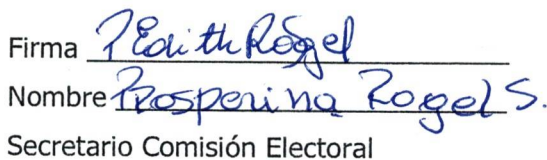 Firma PEdith Rogel
Nombre Prosperina Rogel S.
Secretario Comisión Electoral